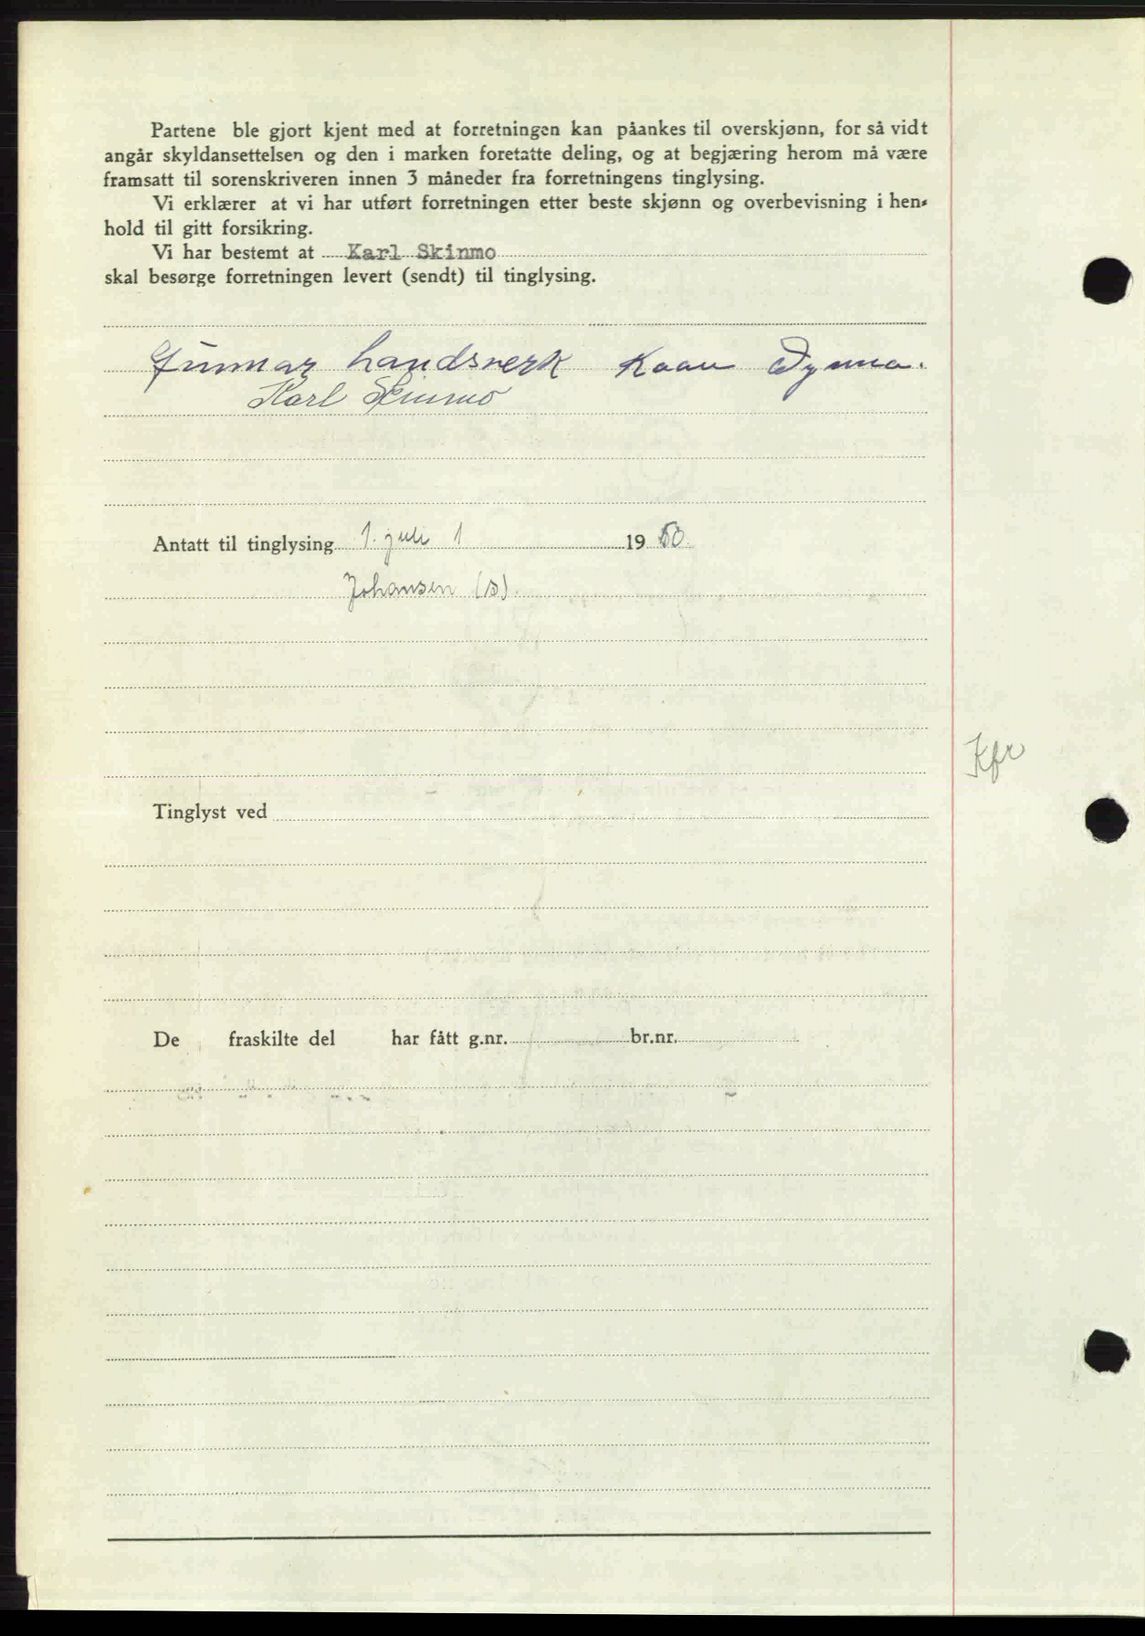 Partene ble gjort kjent med at forretningen kan påankes til overskjønn, for så vidt
angår skyldansettelsen og den i marken foretatte deling, og at begjæring herom må være
framsatt til sorenskriveren innen 3 måneder fra forretningens tinglysing.
Vi erklærer at vi har utført forretningen etter beste skjønn og overbevisning i hen-
hold til gitt forsikring.
Vi har bestemt at Karl Skinmo
skal besørge forretningen levert (sendt) til tinglysing.
Gunnar Landsverk
Karl Skinmo
Antatt til tinglysing 1. juli 1950
Johansen (s).
Kfr
Tinglyst ved
De fraskilte del har fått g.nr. br.nr.